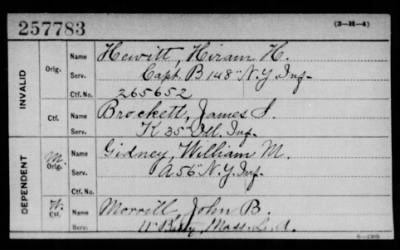 257783 (3-H-4)
INVALID
Orig.
Name Hewitt, Hiram H.
Serv. Capt. B 148" N.Y. Inf.
Ctf. No. 265652
Ctf.
Name Brockett, James S.
Serv. K 35" Ill. Inf.
DEPENDENT
M. Orig.
Name Gidney, William M.
Serv. A 56" N.Y. Inf.
Ctf. No.
W. Ctf.
Name Morrill, John B.
Serv. 11" Batty, Mass. L. A.